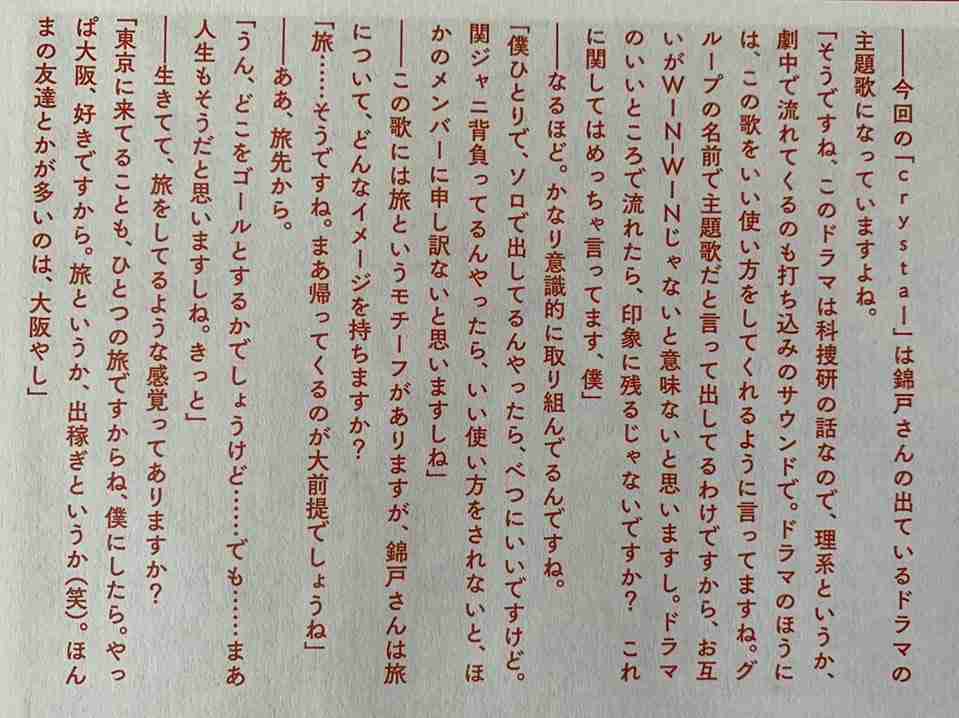 ――今回の「crystal」は錦戸さんの出ているドラマの
主題歌になっていますよね。
「そうですね、このドラマは科捜研の話なので、理系というか、
劇中で流れてくるのも打ち込みのサウンドで。ドラマのほうに
は、この歌をいい使い方をしてくれるように言ってますね。グ
ループの名前で主題歌だと言って出してるわけですから、お互
いがWIN-WINじゃないと意味ないと思いますし。ドラマ
のいいところで流れたら、印象に残るじゃないですか？　これ
に関してはめっちゃ言ってます、僕」
――なるほど。かなり意識的に取り組んでるんですね。
「僕ひとりで、ソロで出してるんやったら、べつにいいですけど。
関ジャニ背負ってるんやったら、いい使い方をされないと、ほ
かのメンバーに申し訳ないと思いますしね」
――この歌には旅というモチーフがありますが、錦戸さんは旅
について、どんなイメージを持ちますか？
「旅……そうですね。まあ帰ってくるのが大前提でしょうね」
――ああ、旅先から。
「うん、どこをゴールとするかでしょうけど……でも……まあ
人生もそうだと思いますしね。きっと」
――生きてて、旅をしてるような感覚ってありますか？
「東京に来てることも、ひとつの旅ですからね、僕にしたら。やっ
ぱ大阪、好きですから。旅というか、出稼ぎというか（笑）。ほん
まの友達とかが多いのは、大阪やし」